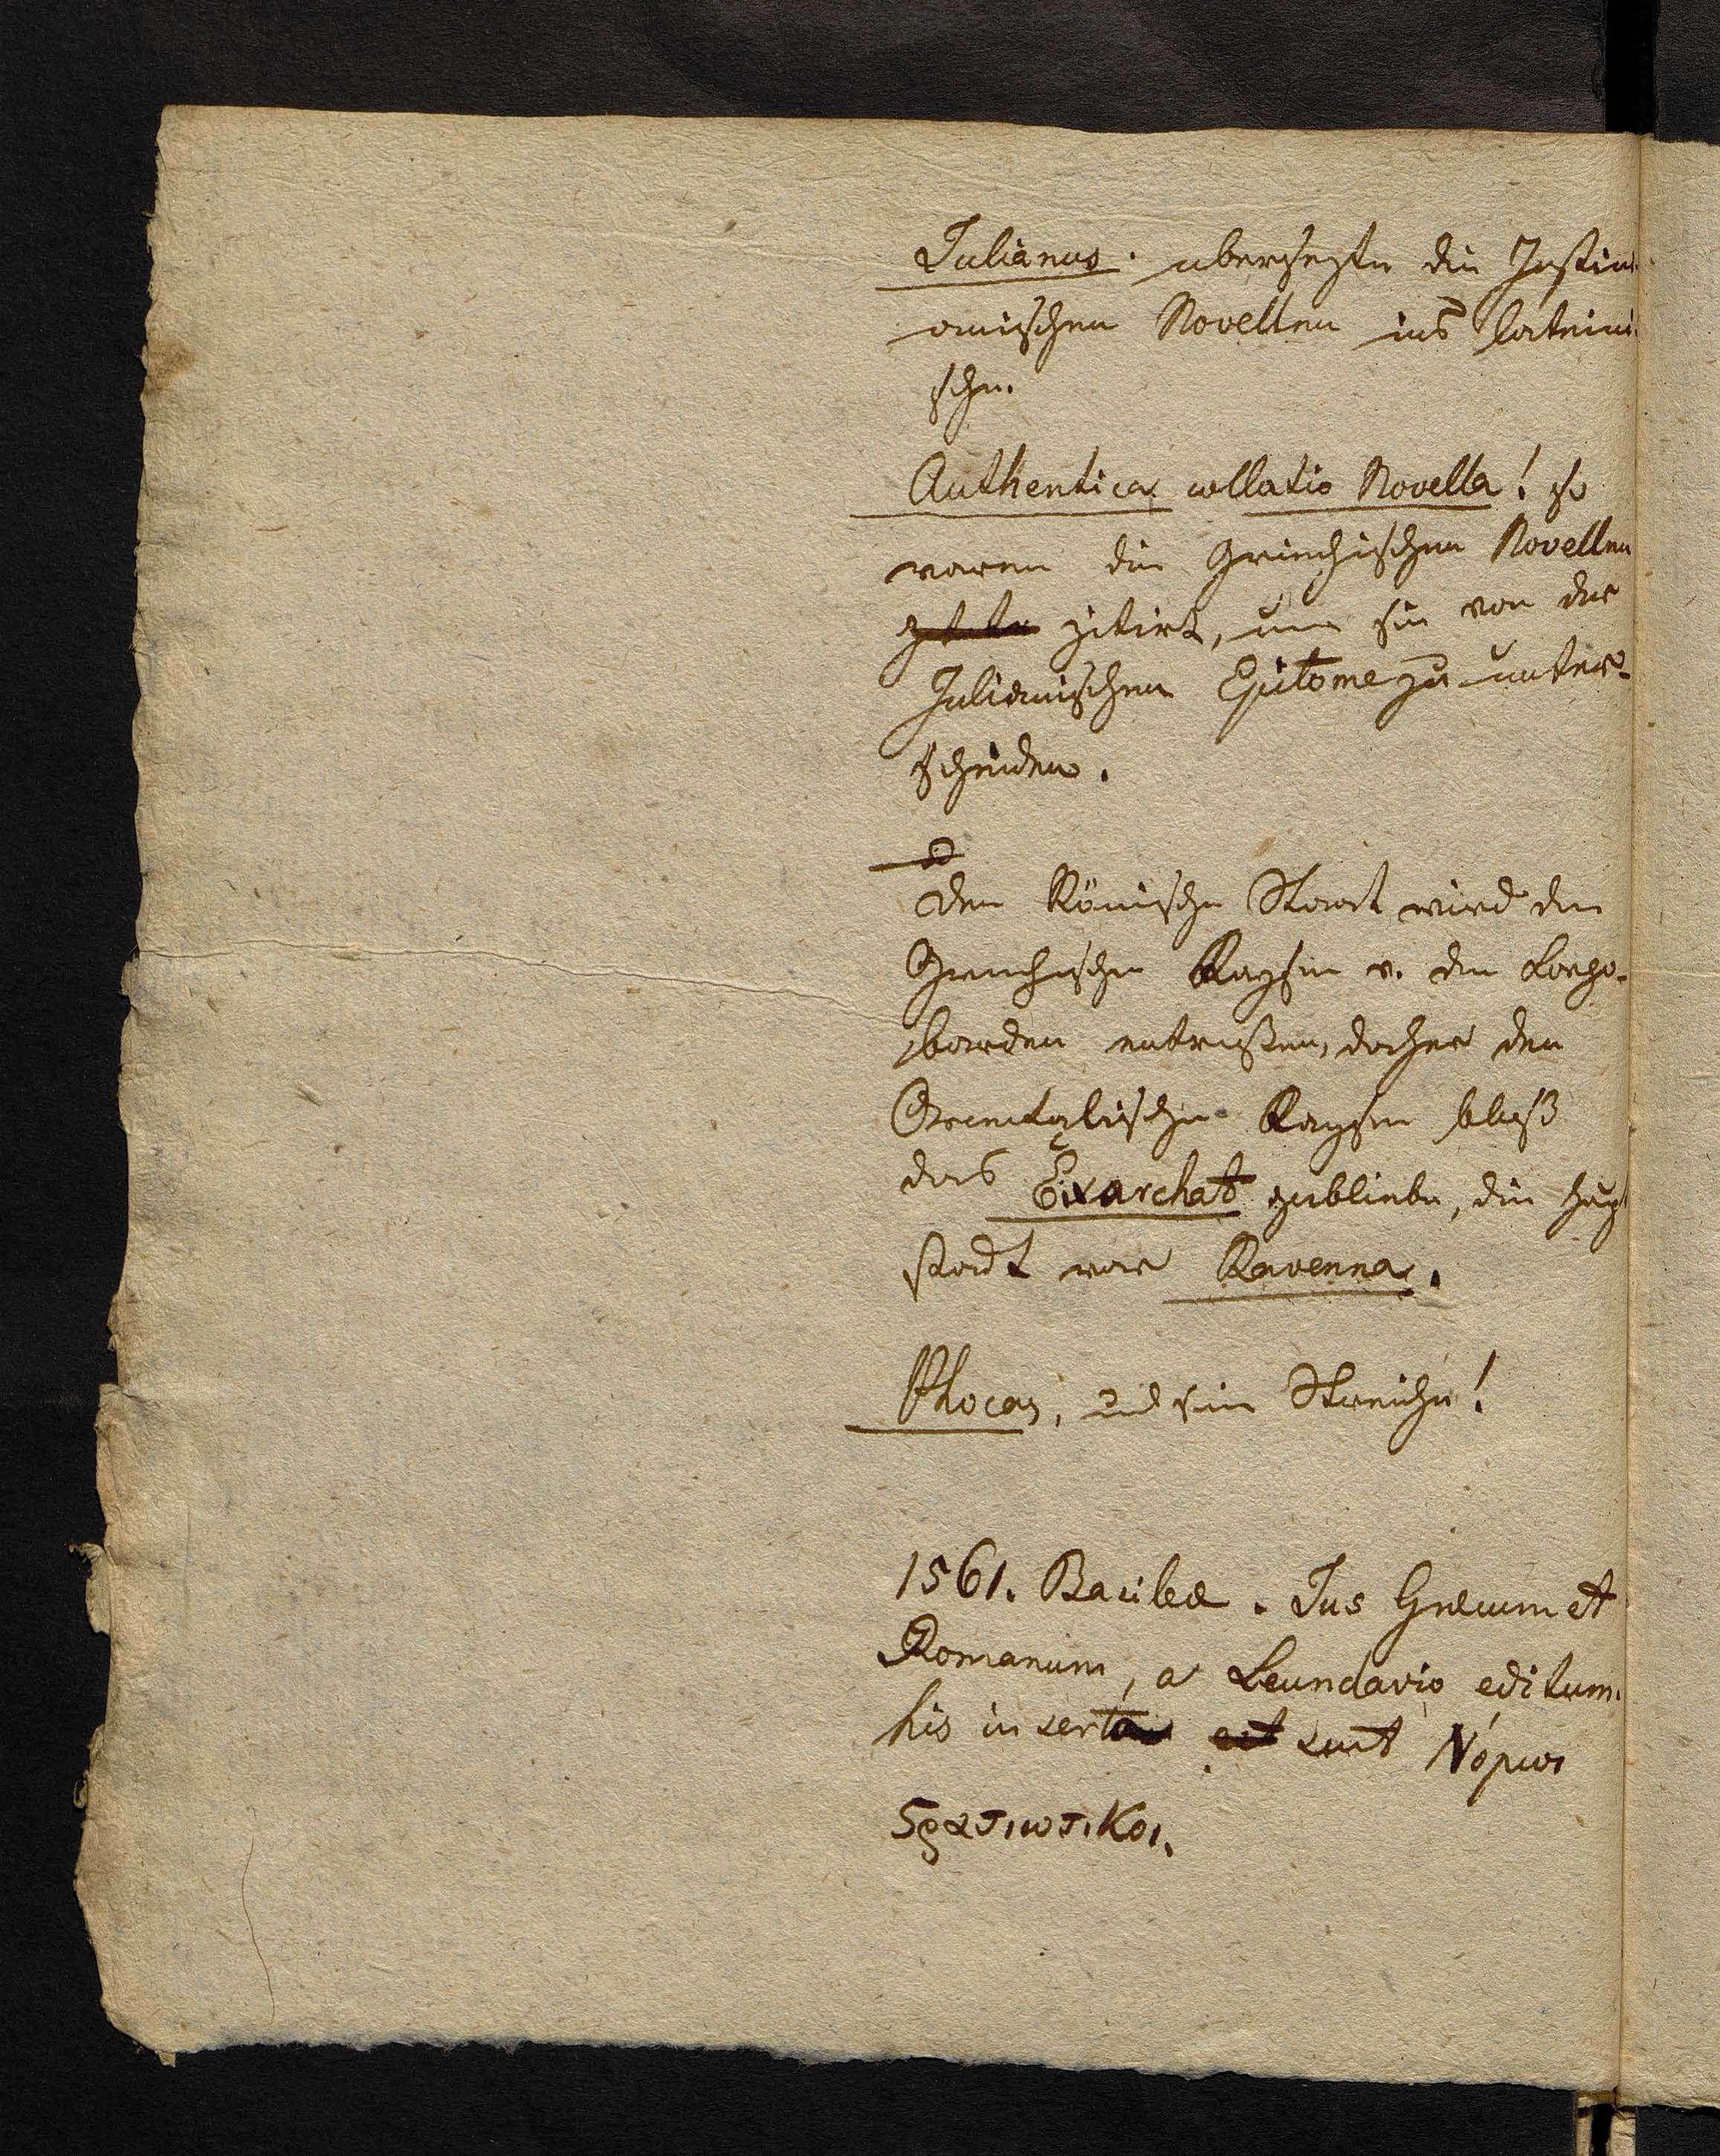 Julianus. ubersezte die Justin
ianischen Novellen ins lateini
sche.
Authentica collatio Novella! so
waren die Griechischen Novellen
zitirt, um sie von der
Julianischen Epitome zu unter-
scheiden.
Den Römische Staat wird den
Griechischen Kaysern v. den Longo-
barden entrissen, daher den
Orientalischen Kaysern bloß
das Exarchat gebliebe, die Haupt
stadt war Ravenna.
Phocas, und sein Streiche!
1561. Basileæ. Jus Græcum et
Romanum, a Leundavio editum.
his inserta sunt Νόμοι
Στρατιωτικοι.